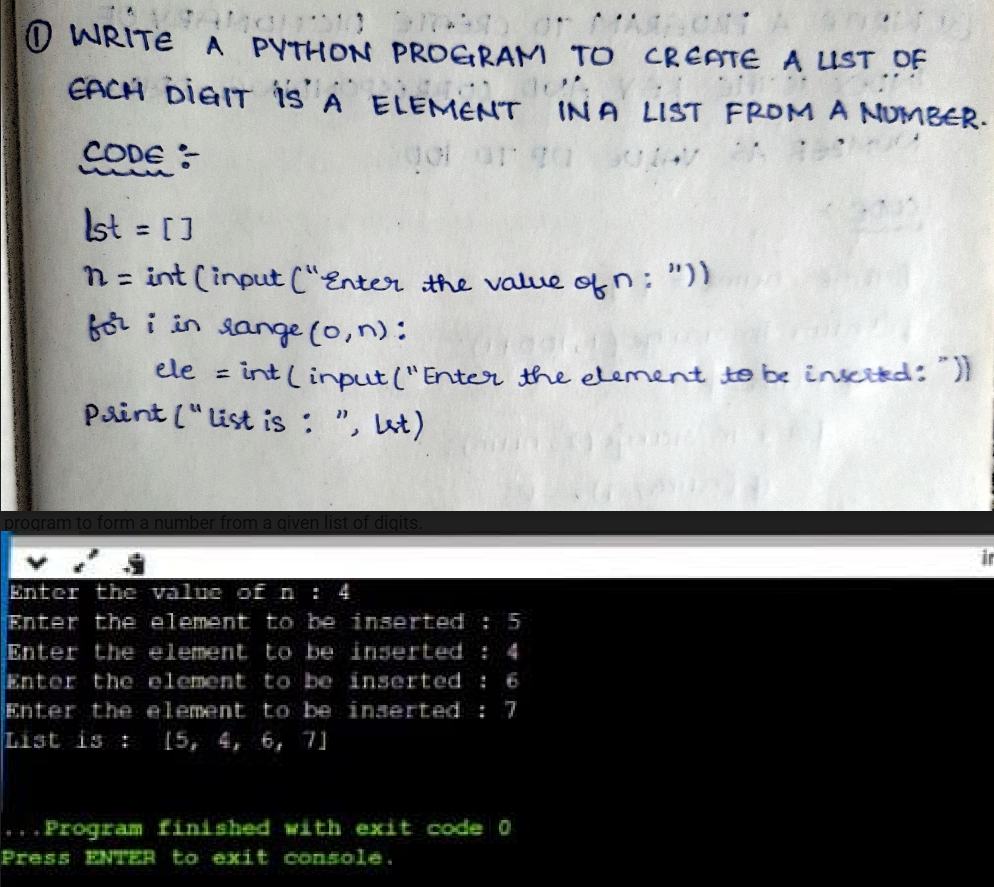 ① WRITE A PYTHON PROGRAM TO CREATE A LIST OF
EACH DIGIT IS A ELEMENT IN A LIST FROM A NUMBER.
CODE :-
lst = [ ]
n = int(input("Enter the value of n : "))
for i in range(0,n):
ele = int(input("Enter the element to be inserted: "))
Print("list is : ", lst)
program to form a number from a given list of digits.
in
Enter the value of n : 4
Enter the element to be inserted : 5
Enter the element to be inserted : 4
Enter the element to be inserted : 6
Enter the element to be inserted : 7
List is :  [5, 4, 6, 7]
...Program finished with exit code 0
Press ENTER to exit console.